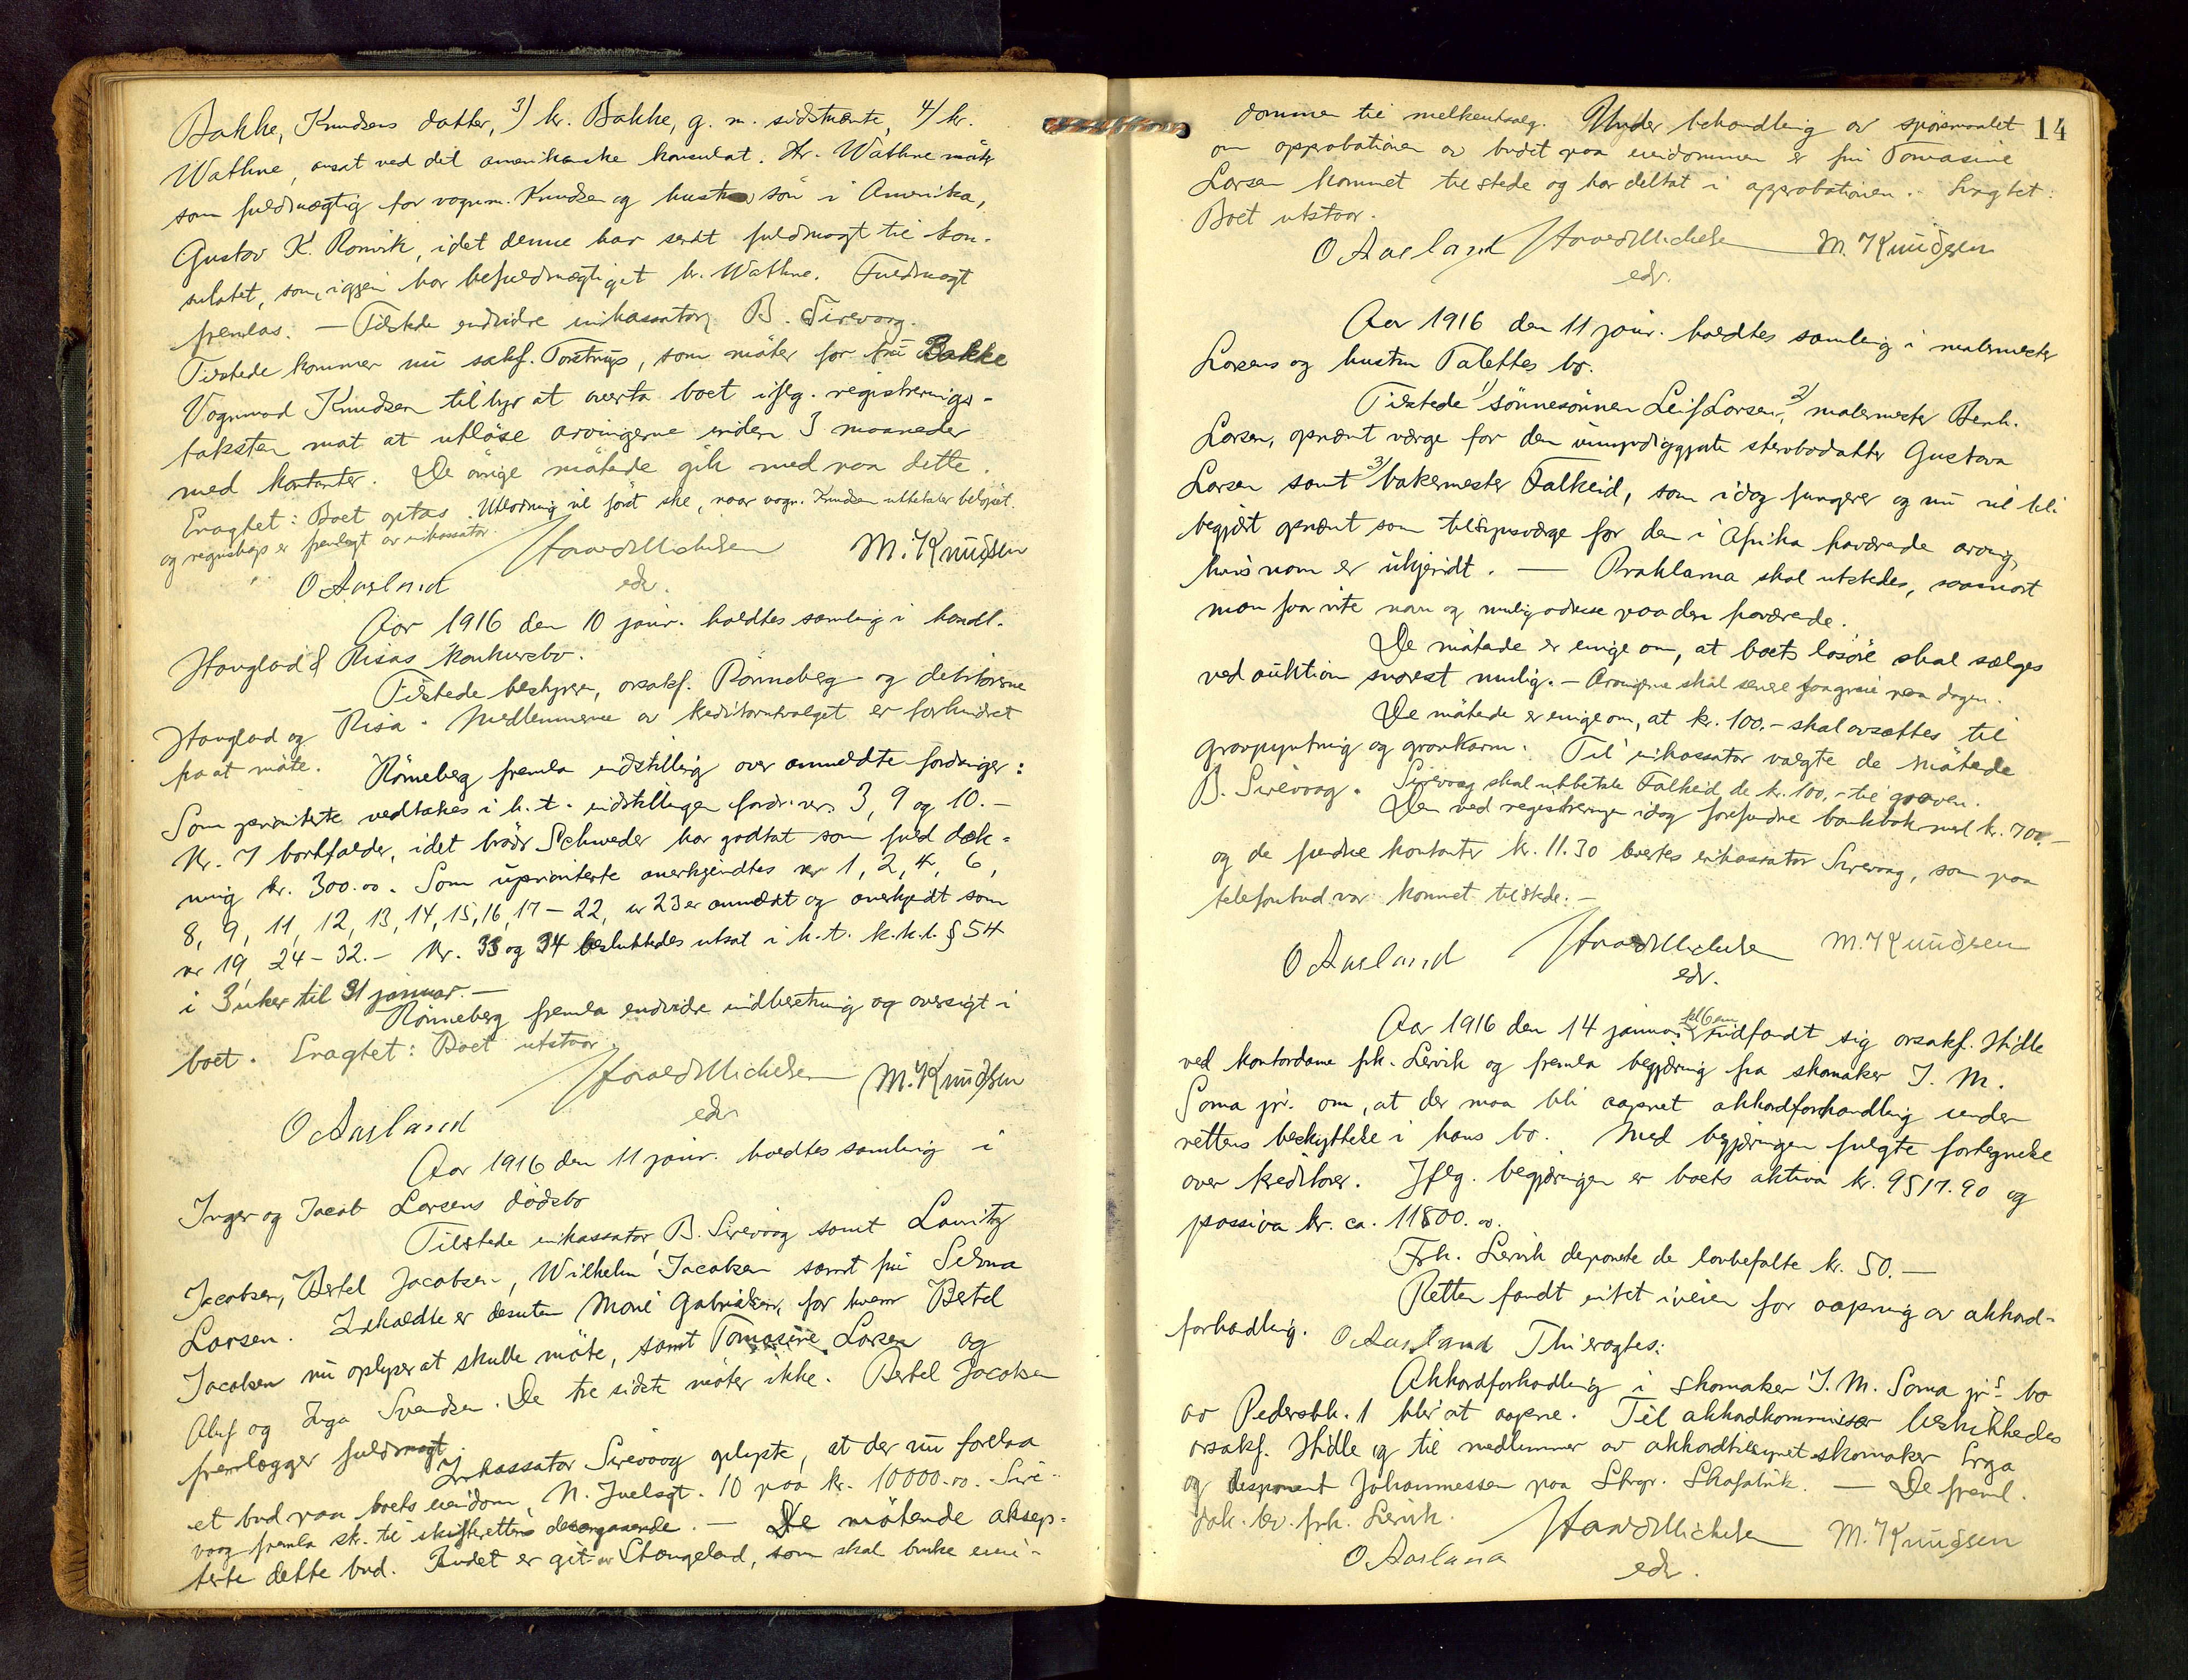 Bakke, Knudsens datter, 3) hr. Bakke, g. m. sidstnævnte, 4) hr.
Wathne, ansat ved det amerikanske konsulat. Hr. Wathne møter
som fuldmægtig for vognm. Knudsen og hustrus søn i Amerika,
Gustav K. Ronvik, idet denne har sendt fuldmagt til kon-
sulatet, som igjen har befuldmægtiget hr. Wathne. Fuldmagt
fremlas. — Tilstede endvidre inkassator B. Sirevaag.
Tilstede kommer nu sakf. Torstrup, som møter for fru Bakke
Vognmand Knudsen tilbyr at overta boet iflg. registrerings-
taksten mot at utløse arvingerne inden 3 maaneder
med kontanter. De øvrige møtende gik med paa dette.
Eragtet: Boet optas. Utlodning vil først ske, naar vogn. Knudsen utbetaler beløpet.
og regnskap er fremlagt av inkassator.
O Aasland Harald Michelsen M. Knudsen
edv.
Aar 1916 den 10 januar. holdtes samling i handl.
Haugland & Risas konkursbo.
Tilstede bestyrer, orsakf. Rönneberg og debitorerne
Haugland og Risa. Medlemmerne av kreditorutvalget er forhindret
fra at møte. Rönneberg fremla indstilling over anmeldte fordringer:
Som prioriterte vedtakes i h. t. indstillingen fordr. nr. 3, 9 og 10. —
Nr. 7 bortfalder, idet brødr Schweder har godtat som fuld dæk-
ning kr. 300.00. Som uprioriterte anerkjendtes nr 1, 2, 4, 6,
8, 9, 11, 12, 13, 14, 15, 16, 17 - 22, nr 23 er anmeldt og anerkjendt som
nr 19, 24 - 32. — Nr. 33 og 34 besluttedes utsat i h. t. k.k.l. § 54
i 3 uker til 31 januar. —
Rönneberg fremla endvidre indberetning og oversigt i
boet. Eragtet: Boet utstaar.
O Aasland Harald Michelsen M. Knudsen
edv
Aar 1916 den 11 januar. holdtes samling i
Inger og Jacob Larsens dödsbo
Tilstede inkassator B. Sirevaag samt Lauritz
Jacobsen, Bertel Jacobsen, Wilhelm Jacobsen samt fru Selma
Larsen. Indkaldte er desuten Marie Gabrielsen, for hvem Bertel
Jacobsen nu oplyser at skulle møte, samt Tomasine Larsen og
Oluf og Inga Svendsen. De tre sidste møter ikke. Bertel Jacobsen
fremlægger fuldmagt.
Inkassator Sirevaag oplyste, at der nu forelaa
et bud paa boets eiendom, N. Juelsgt. 10 paa kr. 10000.00. Sire-
vaag fremla sk. til skifterettens
De møtende aksep-
terte dette bud. Budet er git av Stangeland, som skal bruke eien-
14
dommen til melkeutsalg. Under behandling av spørsmaalet
om approbationen av budet paa eiendommen er fru Tomasine
Larsen kommet tilstede og har deltat i approbationen. Eragtet:
Boet utstaar.
O Aasland Harald Michelsen M. Knudsen
edv.
Aar 1916 den 11 januar. holdtes samling i malermester
Larsens og hustru Talettes bo.
Tilstede 1) sønnesønnen Leif Larsen, 2) malermester Bernh.
Larsen, opnævnt værge for den umyndiggjorte stervbodatter Gustava
Larsen samt 3) bakermester Falkeid, som idag fungerer og nu vil bli
begjært opnævnt som tilsynsværge for den i Afrika fraværende arving,
hvis navn er ukjendt. — Proklama skal utstedes, saasnart
man faar vite navn og mulig adresse paa den fraværende.
De møtende er enige om, at boets løsøre skal sælges
ved auktion snarest mulig. — Arvingerne skal senere faa greie paa dagen.
De møtende er enige om, at kr. 100.- skal avsættes til
gravpyntning og gravkarm. Til inkassator valgte de møtende
B. Sirevaag. Sirevaag skal utbetale Falkeid de kr. 100.- til graven.
Den ved registreringen idag forefundne bankbok med kr. 700.—
og de fundne kontanter kr. 11.30 leveres inkassator Sirevaag, som paa
telefonbud var kommet tilstede. —
O Aasland Harald Michelsen M. Knudsen
edv.
Aar 1916 den 14 januar kl 6 em indfandt sig orsakf. Hidle
ved kontordame frk. Lervik og fremla begjæring fra skomaker J. M.
Soma jr. om, at der maa bli aapnet akkordforhandling under
rettens beskyttelse i hans bo. Med begjæringen fulgte fortegnelse
over kreditorer. Iflg. begjæringen er boets aktiva kr. 9517.90 og
passiva kr. ca. 11800.00.
Frk. Lervik deponerte de lovbefalte kr. 50. —
Retten fandt intet iveien for aapning av akkord-
forhandling. O Aasland Thi eragtes:
Akkordforhandling i skomaker J. M. Soma jr's bo
av Pedersbk. 1 blir at aapne. Til akkordkommissær beskikkedes
orsakf. Hidle og til medlemmer av akkordtilsynet skomaker Erga
og disponent Johannessen paa Stvgr. Skofabrik. — De freml.
dok. lev. frk. Lervik.
O Aasland Harald Michelsen M. Knudsen
edv.